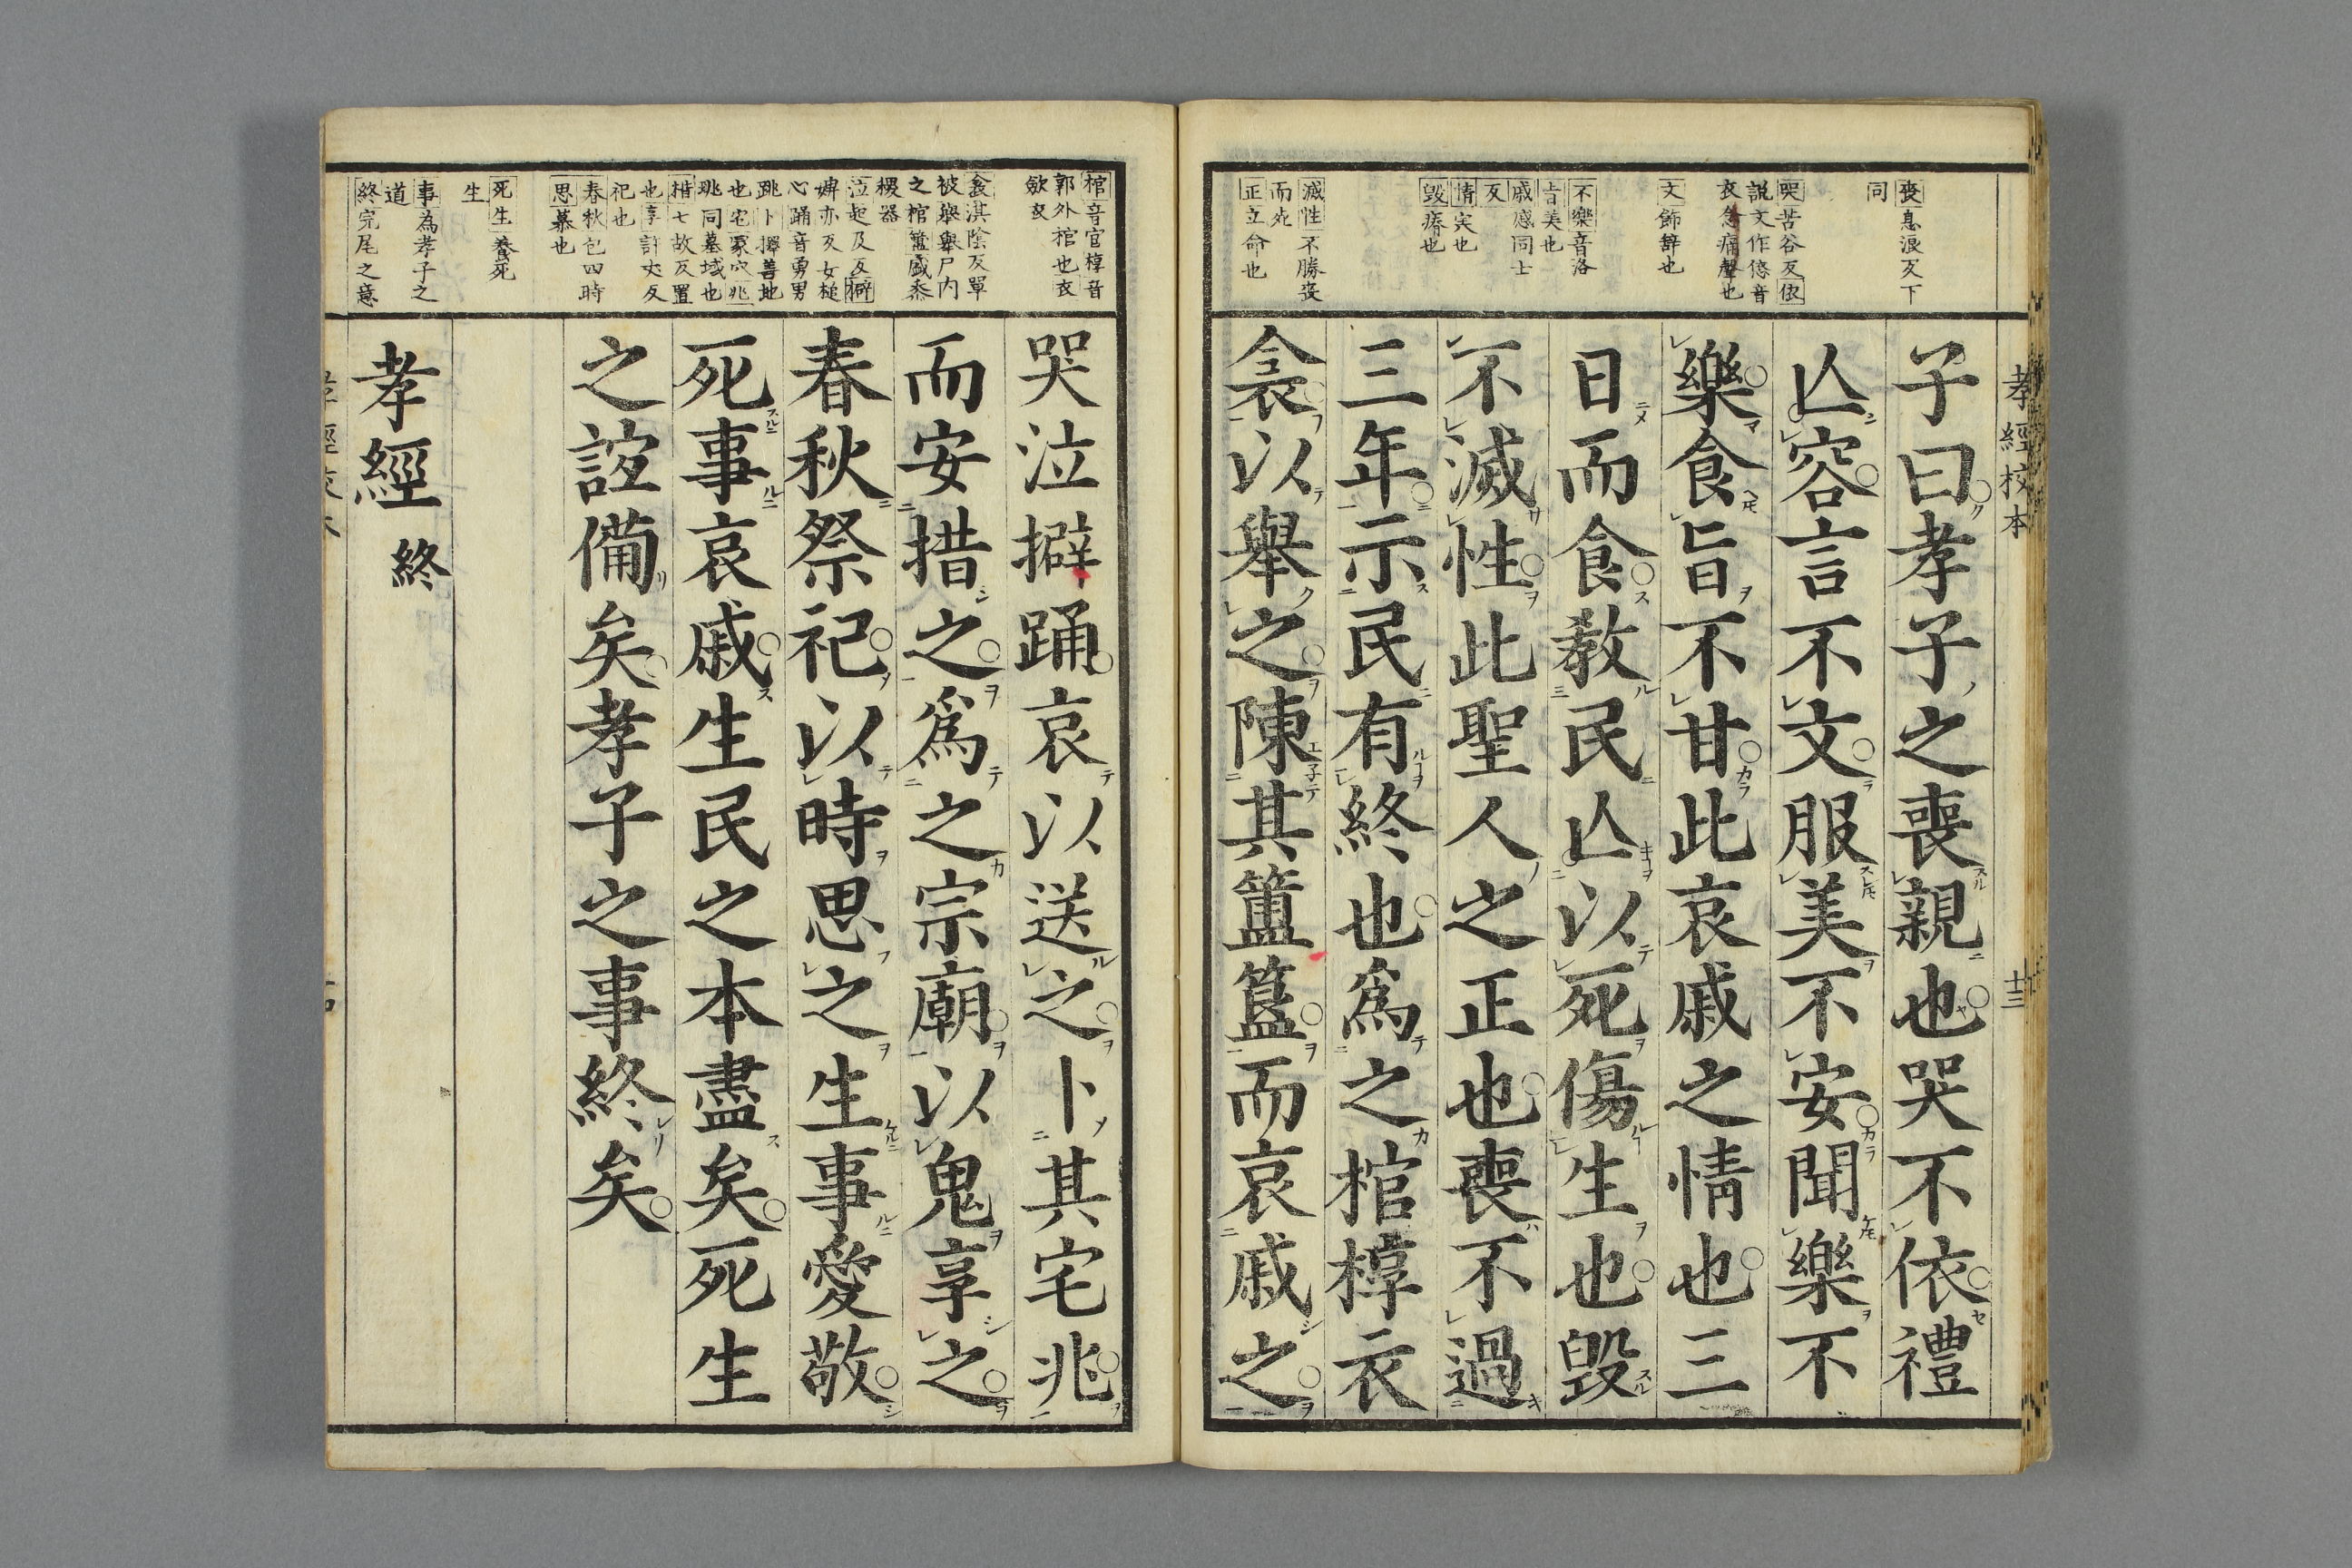 孝經校本
十三
喪息浪反下
同
哭苦谷反依
説文作㥋音
哀怠痛聲也
文飾辞也
不樂音洛
旨美也
戚慼同士
反
情実也
毀瘠也
滅性不勝喪
而死
正立命也
子曰孝子之喪親也哭不依禮
亾容言不文服美不安聞樂不
樂食旨不甘此哀戚之情也三
日而食教民亾以死傷生也毀
不滅性此聖人之正也喪不過
三年示民有終也爲之棺椁衣
衾以舉之陳其簠簋而哀戚之
棺音官椁音
郭外棺也衣
歛衣
衾淇陰反單
被舉舉尸内
之棺簠盛黍
稷器
泣起及反擗
婢亦反女槌
心踊音勇男
跳卜擇善地
也宅冢穴兆
珧同墓域也
措七故反置
也享許丈反
祀也
春秋包四時
思慕也
死生養死
生
事為孝子之
道
終完尾之意
哭泣擗踊哀以送之卜其宅兆
而安措之爲之宗廟以鬼享之
春秋祭祀以時思之生事愛敬
死事哀戚生民之本盡矣死生
之誼備矣孝子之事終矣
孝經 終